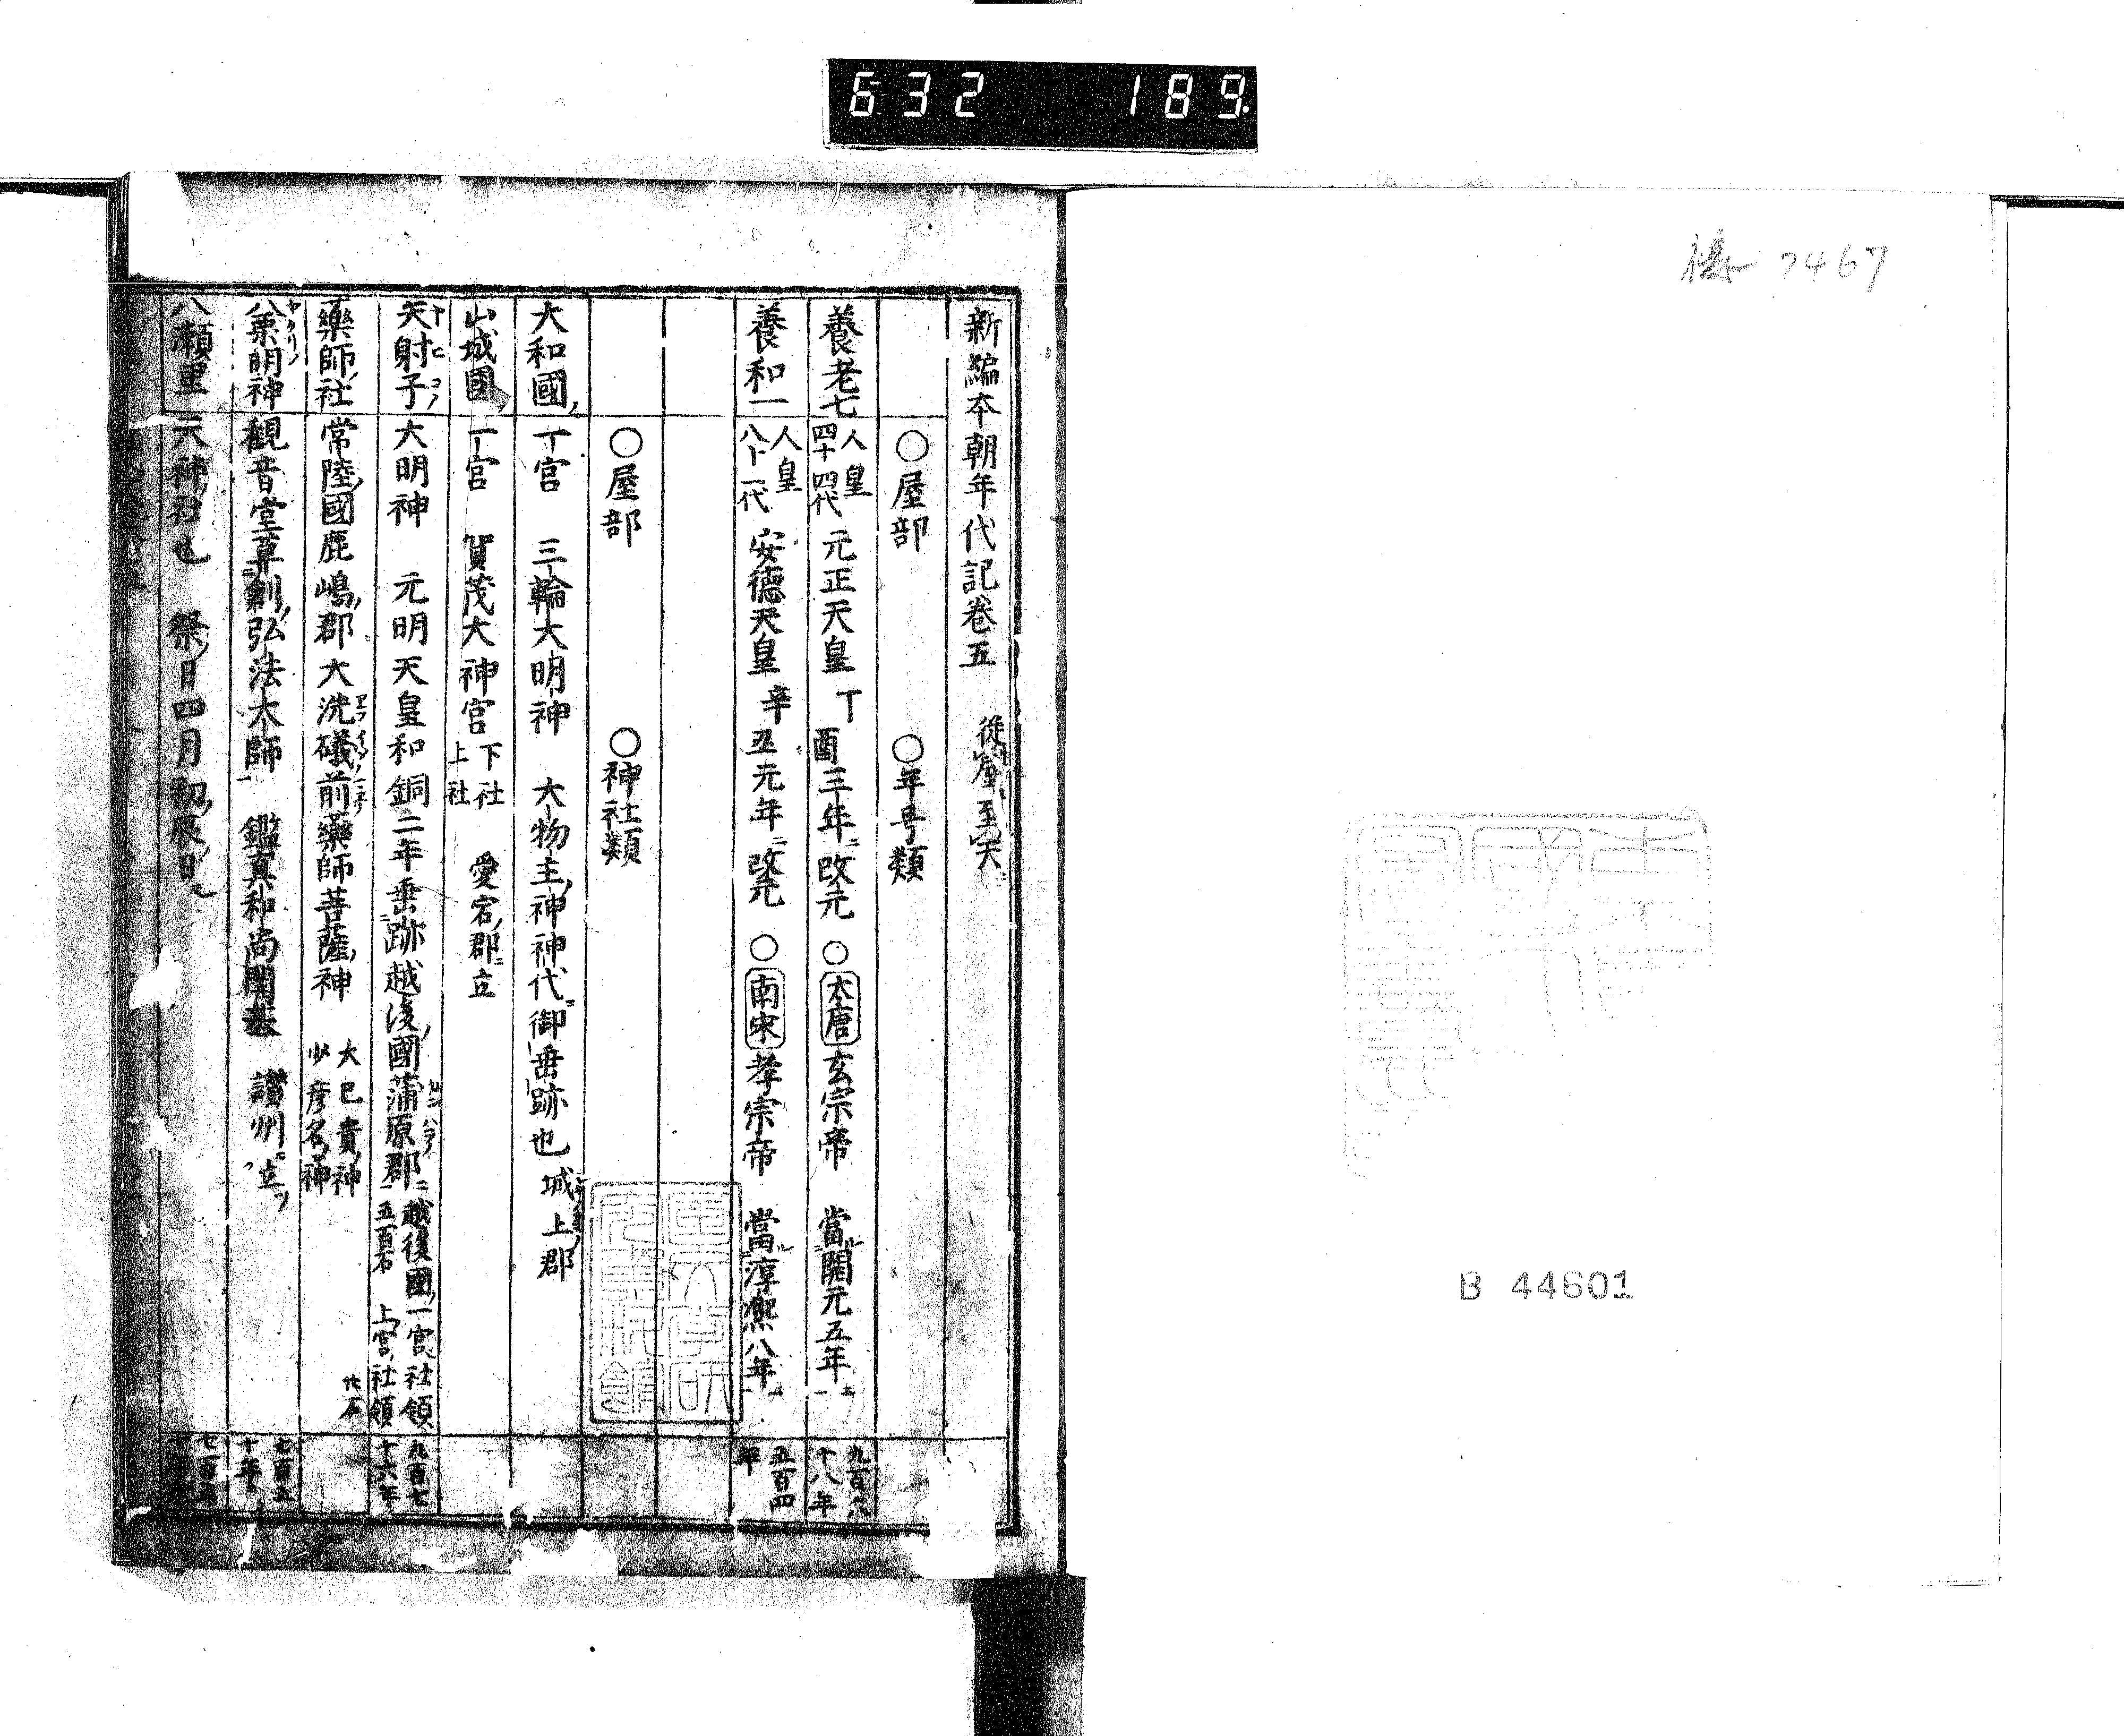 632 189.
7467
B 44601
新編本朝年代記巻五 従屋至天
○屋部 ○年号類
養老七 人皇四十四代 元正天皇 丁酉三年ニ改元 ○大唐玄宗帝 當開元五年ニ 九百六十八年
養和一 人皇八十一代 安德天皇 辛丑元年ニ改元 ○南宋孝宗帝 當淳熈八年ニ 五百四年
○屋部 ○神社類
大和國 一宮 三輪大明神 大物主神神代ニ御垂跡也 城上郡
山城國 一宮 賀茂大神宮 下社上社 愛宕郡ニ立
矢射子 大明神 元明天皇和銅二年垂跡越後國蒲原郡ニ 越後國一宮社領五百石 上宮社領 九百七十六年
藥師社 常陸國鹿嶋郡大洗礒前藥師菩薩神 大己貴神少彦名神
八栗明神 観音堂草創弘法大師 鑑真和尚開基 讃州ニ立
八瀬里 天神社也 祭日四月初辰日